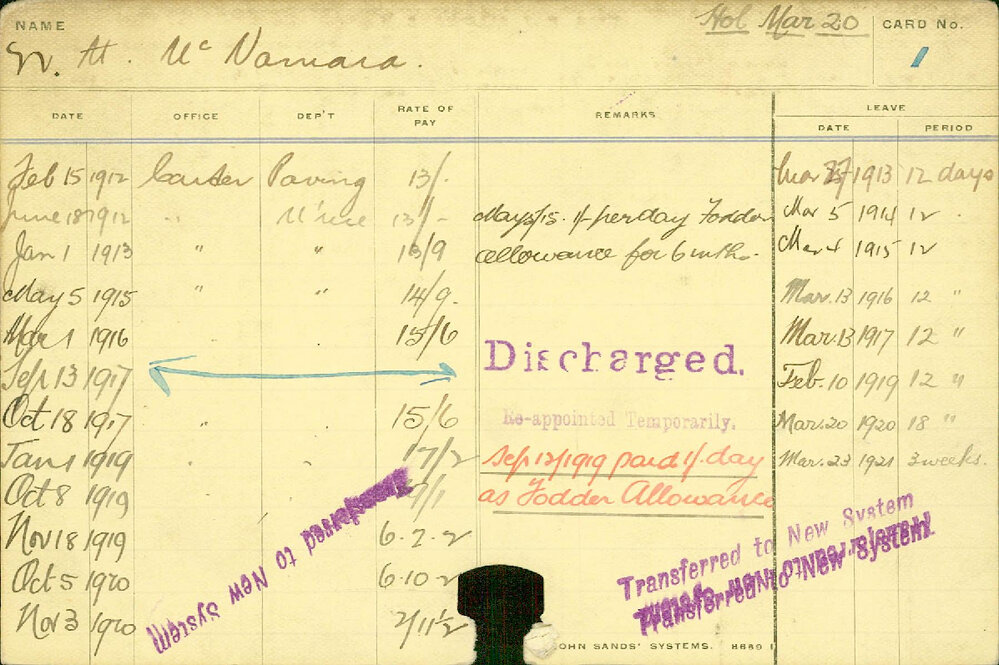 NAME
Hol Mar 20
CARD No.
W. H. McNamara.
1
DATE OFFICE DEP'T RATE OF PAY REMARKS LEAVE
DATE PERIOD
Feb 15 1912 Carter Paving 13/- 1913 12 days
June 18 1912 " 13/- May 5/15. 1/- per day Fodder Mar 5 1914 12 "
Jan 1 1913 " " 13/9 allowance for 6 mths. Mar 4 1915 12
May 5 1915 " " 14/9. Mar. 13 1916 12 "
Mar 1 1916 15/6 Mar. 13 1917 12 "
Sep 13 1917 Discharged. Feb. 10 1919 12 "
Oct 18 1917 " 15/6 Re-appointed Temporarily. Mar. 20 1920 18 "
Jan 1 1919 17/2 Sep 12/1919 paid 1/- day Mar. 23 1921 3 weeks.
Oct 8 1919 as Fodder Allowance
Nov 18 1919 6-2-2
Oct 5 1920 6-10-2
Nov 3 1920 2/11½
Transferred to New System
Transferred to New System
Transferred to New System
JOHN SANDS' SYSTEMS. 8689